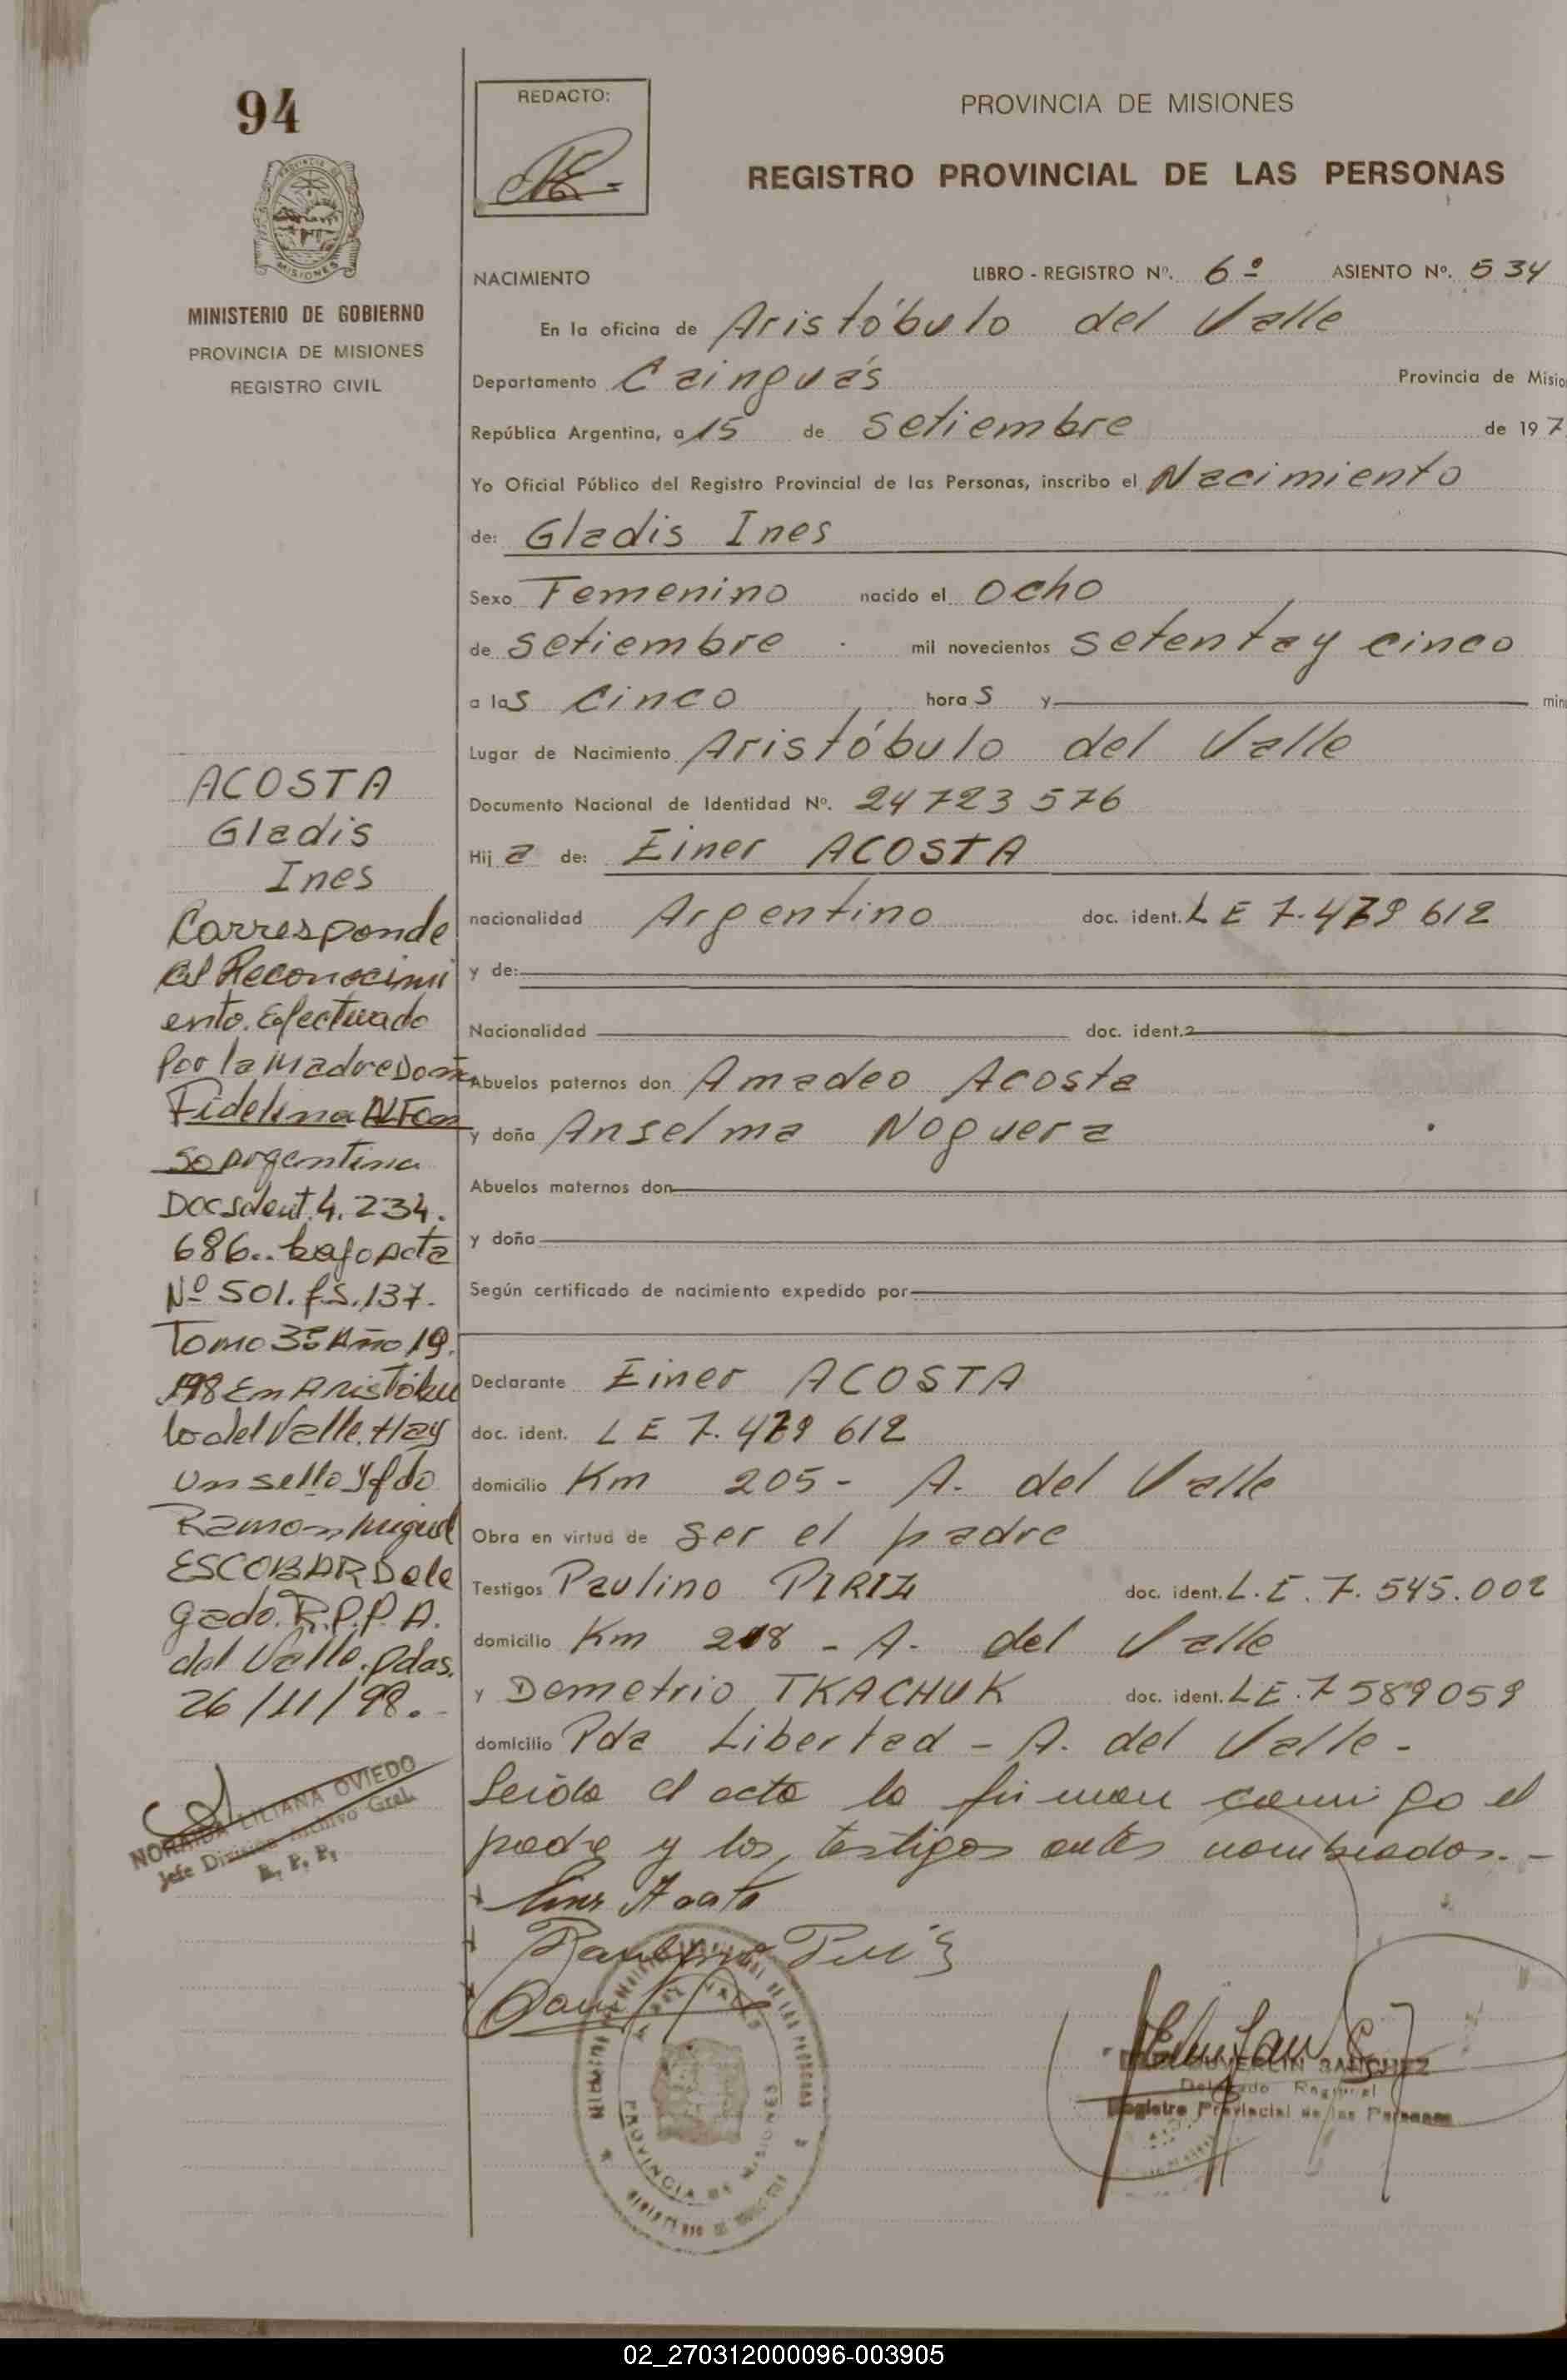 94
REDACTO:
PROVINCIA DE MISIONES
REGISTRO PROVINCIAL DE LAS PERSONAS
PROVINCIA
MISIONES
MINISTERIO DE GOBIERNO
PROVINCIA DE MISIONES
REGISTRO CIVIL
NACIMIENTO LIBRO - REGISTRO Nº. 6º ASIENTO Nº. 534
En la oficina de Aristóbulo del Valle
Departamento Cainguás Provincia de Misio
República Argentina, a 15 de Setiembre de 197
Yo Oficial Público del Registro Provincial de las Personas, inscribo el Nacimiento
de: Gladis Ines
Sexo Femenino nacido el ocho
de setiembre mil novecientos setenta y cinco
a las cinco horas y minu
Lugar de Nacimiento Aristóbulo del Valle
Documento Nacional de Identidad Nº. 24723576
Hija de: Einer ACOSTA
nacionalidad Argentino doc. ident. LE 7.479 612
y de:
Nacionalidad doc. ident.
Abuelos paternos don Amadeo Acosta
y doña Anselma Noguera
Abuelos maternos don
y doña
Según certificado de nacimiento expedido por
Declarante Einer ACOSTA
doc. ident. LE 7.479 612
domicilio Km 205 - A. del Valle
Obra en virtud de ser el padre
Testigos Paulino PIRIZ doc. ident. L.E. 7.545.002
domicilio Km 218 - A. del Valle
y Demetrio TKACHUK doc. ident. LE. 7589059
domicilio Pda Libertad - A. del Valle -
Leida el acta la firman conmigo el
padre y los testigos antes nombrados. -
Einer Acosta
Paulino Piriz
PROVINCIA DE MISIONES
SANCHEZ
Delegado Regional
Registro Provincial de las Personas
ACOSTA
Gladis
Ines
Corresponde
al Reconocimi
ento. Efectuado
Por la Madre Doña
Fidelina ALFon
so argentina
Doc Ident. 4. 234.
686.. bajo Acta
Nº 501. fs. 137.
Tomo 3º Año 19.
198 En Aristóbu
lo del Valle. Hay
un sello y fdo
Ramon Miguel
ESCOBAR Dele
gado. R.P.P. A.
del Valle. Pdas.
26/11/98.
NORAIDA LILIANA OVIEDO
Jefe División Archivo Gral.
R. P. P.
02_270312000096-003905